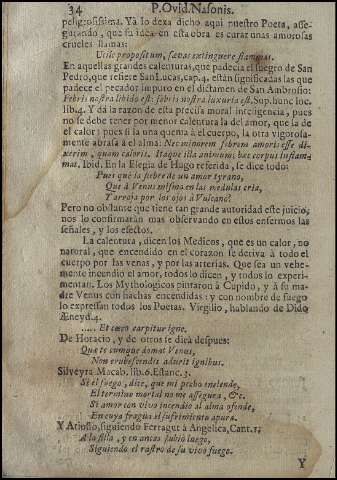 34 P. Ovid. Nasonis.
peligrosissima. Ya lo dexa dicho aqui nuestro Poeta, asse-
gurando, que su idea en esta obra es curar unas amorosas
crueles llamas:
Utile propositum, sævas extinguere flammas.
En aquellas grandes calenturas, que padecia el suegro de San
Pedro, que refiere San Lucas, cap. 4. están significadas las que
padece el pecador impuro en el dictamen de San Ambrosio:
Febris nostra libido est: febris nostra luxuria est, Sup. hunc loc.
lib. 4. Y dá la razon de esta precisa moral inteligencia, pues
no se debe tener por menor calentura la del amor, que la de
el calor; pues si la una quema á el cuerpo, la otra vigorosa-
mente abrasa á el alma: Nec minorem febrem amoris esse di-
xerim, quam caloris. Itaque illa animum; hæc corpus inflama-
mat. Ibid. En la Elegia de Hugo referida, se dice todo:
Pues què la fiebre de un amor tyrano,
Que á Venus misma en las medulas cria,
Y arroja por los ojos á Vulcano?
Pero no obstante que tienen tan grande autoridad este juicio,
nos lo confirmarán mas observando en estos enfermos las
señales, y los efectos.
La calentura, dicen los Medicos, que es un calor, no
natural, que encendido en el corazon se deriva á todo el
cuerpo por las venas, y por las arterias. Que sea un vehe-
mente incendio el amor, todos lo dicen, y todos lo experi-
mentan. Los Mythologicos pintaron à Cupido, y à su ma-
dre Venus con hachas encendidas: y con nombre de fuego
lo expressan todos los Poetas. Virgilio, hablando de Dido
Æneyd. 4.
..... Et cæco carpitur igne.
De Horacio, y de otros se dirà despues:
Quæ te cumque domat Venus,
Non erubescendis adurit ignibus.
Silveyra Macab. lib. 6. Estanc. 3.
Si el fuego, dice, que mi pecho enciende,
El termino mortal no me assegura, &c.
Si amor con vivo incendio al alma ofende,
En cuya fragua el sufrimiento apura.
Y Ariosto, siguiendo Ferragut à Angelica, Cant. 1.
A la silla, y en ancas subiò luego,
Siguiendo el rastro de su vivo fuego.
Y